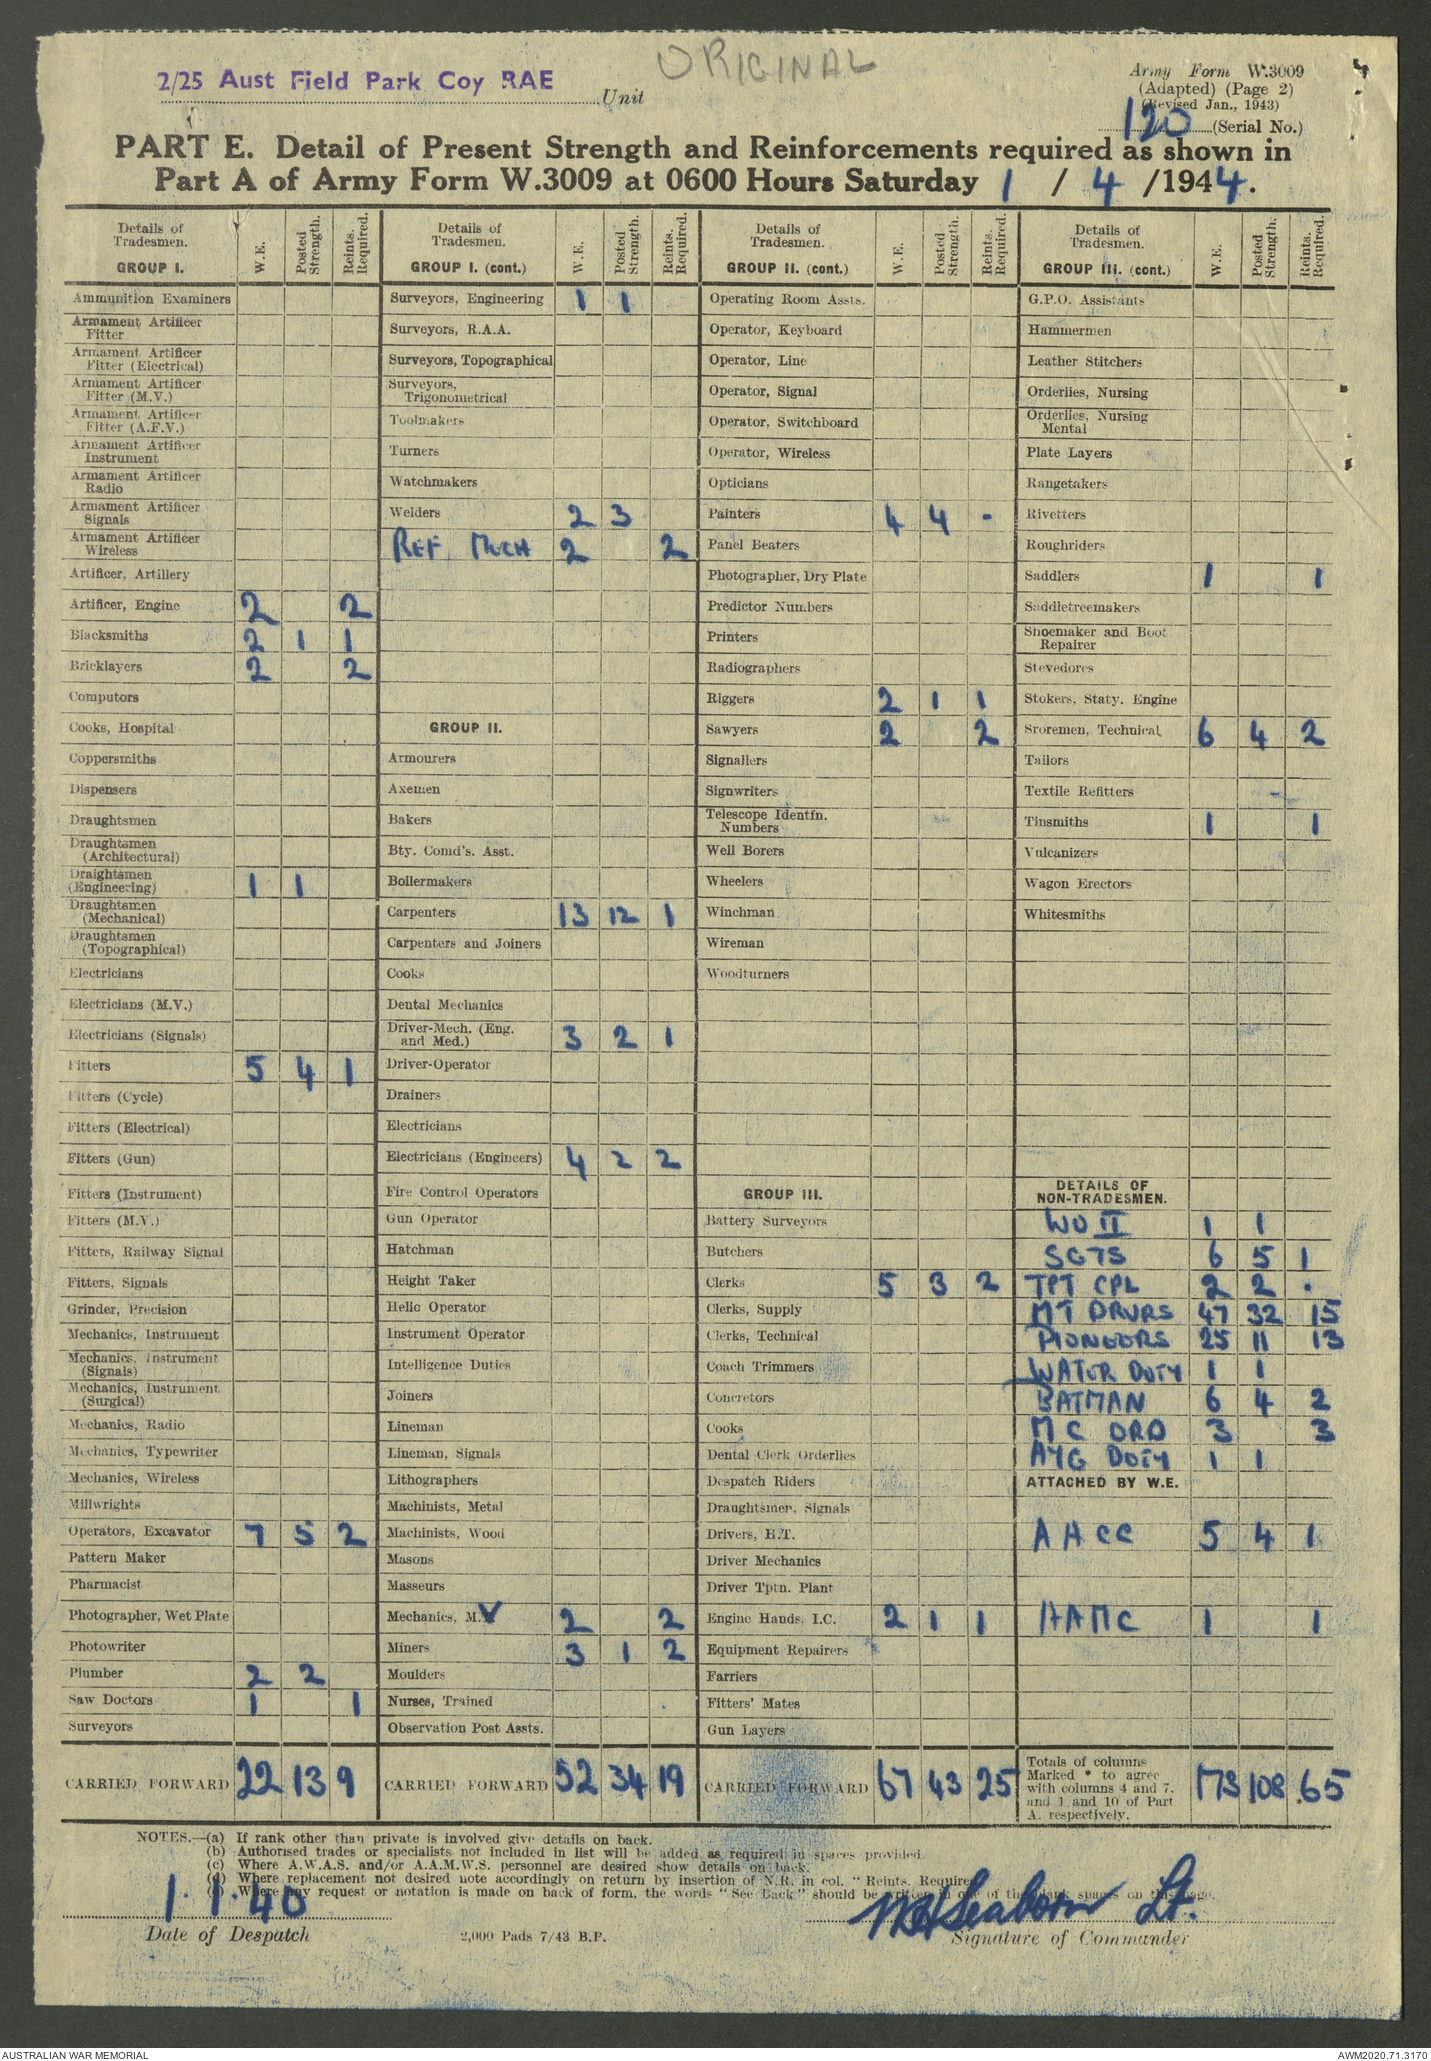 ORIGINAL
2/25 Aust Field Park Coy RAE Unit
Army Form W.3009
(Adapted) (Page 2)
(Revised Jan., 1943)
120 (Serial No.)
PART E. Detail of Present Strength and Reinforcements required as shown in
Part A of Army Form W.3009 at 0600 Hours Saturday 1 / 4 /1944.
Details of Tradesmen. GROUP I. W.E. Posted Strength. Reints. Required.
Ammunition Examiners
Armament Artificer Fitter
Armament Artificer Fitter (Electrical)
Armament Artificer Fitter (M.V.)
Armament Artificer Fitter (A.F.V.)
Armament Artificer Instrument
Armament Artificer Radio
Armament Artificer Signals
Armament Artificer Wireless
Artificer, Artillery
Artificer, Engine 2 2
Blacksmiths 2 1 1
Bricklayers 2 2
Computors
Cooks, Hospital
Coppersmiths
Dispensers
Draughtsmen
Draughtsmen (Architectural)
Draightsmen (Engineering) 1 1
Draughtsmen (Mechanical)
Draughtsmen (Topographical)
Electricians
Electricians (M.V.)
Electricians (Signals)
Fitters 5 4 1
Fitters (Cycle)
Fitters (Electrical)
Fitters (Gun)
Fitters (Instrument)
Fitters (M.V.)
Fitters, Railway Signal
Fitters, Signals
Grinder, Precision
Mechanics, Instrument
Mechanics, Instrument (Signals)
Mechanics, Instrument (Surgical)
Mechanics, Radio
Mechanics, Typewriter
Mechanics, Wireless
Millwrights
Operators, Excavator 7 5 2
Pattern Maker
Pharmacist
Photographer, Wet Plate
Photowriter
Plumber 2 2
Saw Doctors 1 1
Surveyors
CARRIED FORWARD 22 13 9
Details of Tradesmen. GROUP I. (cont.) W.E. Posted Strength. Reints. Required.
Surveyors, Engineering 1 1
Surveyors, R.A.A.
Surveyors, Topographical
Surveyors, Trigonometrical
Toolmakers
Turners
Watchmakers
Welders 2 3
REF MECH 2 2
GROUP II.
Armourers
Axemen
Bakers
Bty. Comd's. Asst.
Boilermakers
Carpenters 13 12 1
Carpenters and Joiners
Cooks
Dental Mechanics
Driver-Mech. (Eng. and Med.) 3 2 1
Driver-Operator
Drainers
Electricians
Electricians (Engineers) 4 2 2
Fire Control Operators
Gun Operator
Hatchman
Height Taker
Helio Operator
Instrument Operator
Intelligence Duties
Joiners
Lineman
Lineman, Signals
Lithographers
Machinists, Metal
Machinists, Wood
Masons
Masseurs
Mechanics, M.V 2 2
Miners 3 1 2
Moulders
Nurses, Trained
Observation Post Assts.
CARRIED FORWARD 52 34 19
Details of Tradesmen. GROUP II. (cont.) W.E. Posted Strength. Reints. Required.
Operating Room Assts.
Operator, Keyboard
Operator, Line
Operator, Signal
Operator, Switchboard
Operator, Wireless
Opticians
Painters 4 4 -
Panel Beaters
Photographer, Dry Plate
Predictor Numbers
Printers
Radiographers
Riggers 2 1 1
Sawyers 2 2
Signallers
Signwriters
Telescope Identfn. Numbers
Well Borers
Wheelers
Winchman
Wireman
Woodturners
GROUP III.
Battery Surveyors
Butchers
Clerks 5 3 2
Clerks, Supply
Clerks, Technical
Coach Trimmers
Concretors
Cooks
Dental Clerk Orderlies
Despatch Riders
Draughtsmen, Signals
Drivers, H.T.
Driver Mechanics
Driver Tptn. Plant
Engine Hands, I.C. 2 1 1
Equipment Repairers
Farriers
Fitters' Mates
Gun Layers
CARRIED FORWARD 67 43 25
Details of Tradesmen. GROUP III. (cont.) W.E. Posted Strength. Reints. Required.
G.P.O. Assistants
Hammermen
Leather Stitchers
Orderlies, Nursing
Orderlies, Nursing Mental
Plate Layers
Rangetakers
Rivetters
Roughriders
Saddlers 1 1
Saddletreemakers
Shoemaker and Boot Repairer
Stevedores
Stokers, Staty. Engine
Sroremen, Technical 6 4 2
Tailors
Textile Refitters
Tinsmiths 1 1
Vulcanizers
Wagon Erectors
Whitesmiths
DETAILS OF NON-TRADESMEN.
WO II 1 1
SGTS 6 5 1
TPT CPL 2 2 .
MT DRVRS 47 32 15
PIONEERS 25 11 13
WATER DUTY 1 1
BATMAN 6 4 2
M C ORD 3 3
HYG DUTY 1 1
ATTACHED BY W.E.
AACC 5 4 1
AAMC 1 1
Totals of columns Marked * to agree with columns 4 and 7. and 1 and 10 of Part A. respectively. 173 108 65
NOTES.—(a) If rank other than private is involved give details on back.
(b) Authorised trades or specialists not included in list will be added as required in spaces provided.
(c) Where A.W.A.S. and/or A.A.M.W.S. personnel are desired show details on back.
(d) Where replacement not desired note accordingly on return by insertion of N.R. in col. "Reints. Require
(e) Where any request or notation is made on back of form, the words "See Back" should be written in one of the blank spaces on this page.
Date of Despatch
2,000 Pads 7/43 B.P.
Lt.
Signature of Commander
AUSTRALIAN WAR MEMORIAL
AWM2020.71.3170